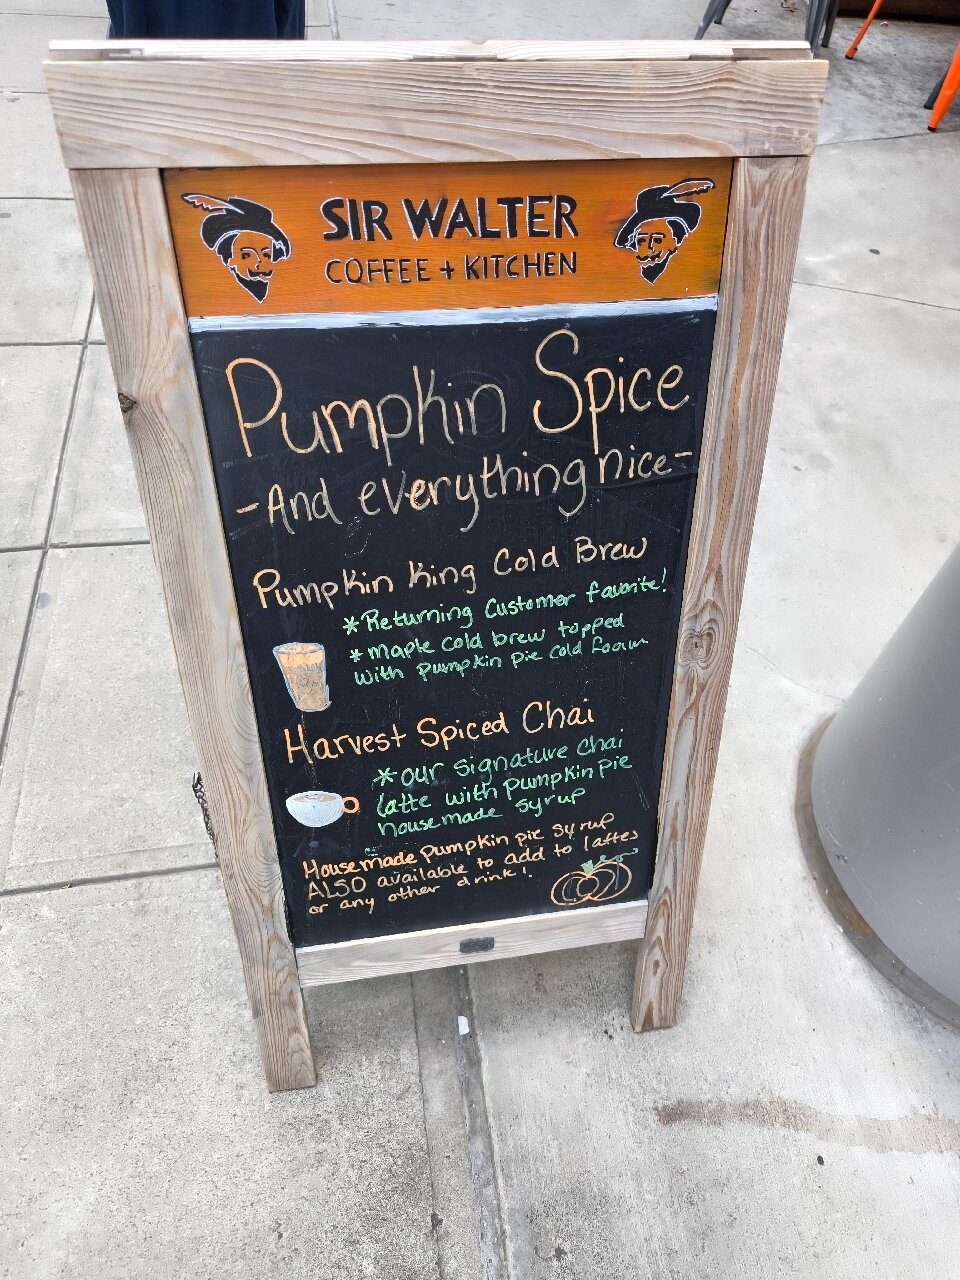 SIR WALTER
COFFEE + KITCHEN
Pumpkin Spice
-And everything nice-
Pumpkin King Cold Brew
*Returning Customer favorite!
*maple cold brew topped
with pumpkin pie cold foam
Harvest Spiced Chai
*our signature chai
latte with pumpkin pie
housemade syrup
Housemade pumpkin pie syrup
ALSO available to add to lattes
or any other drink!